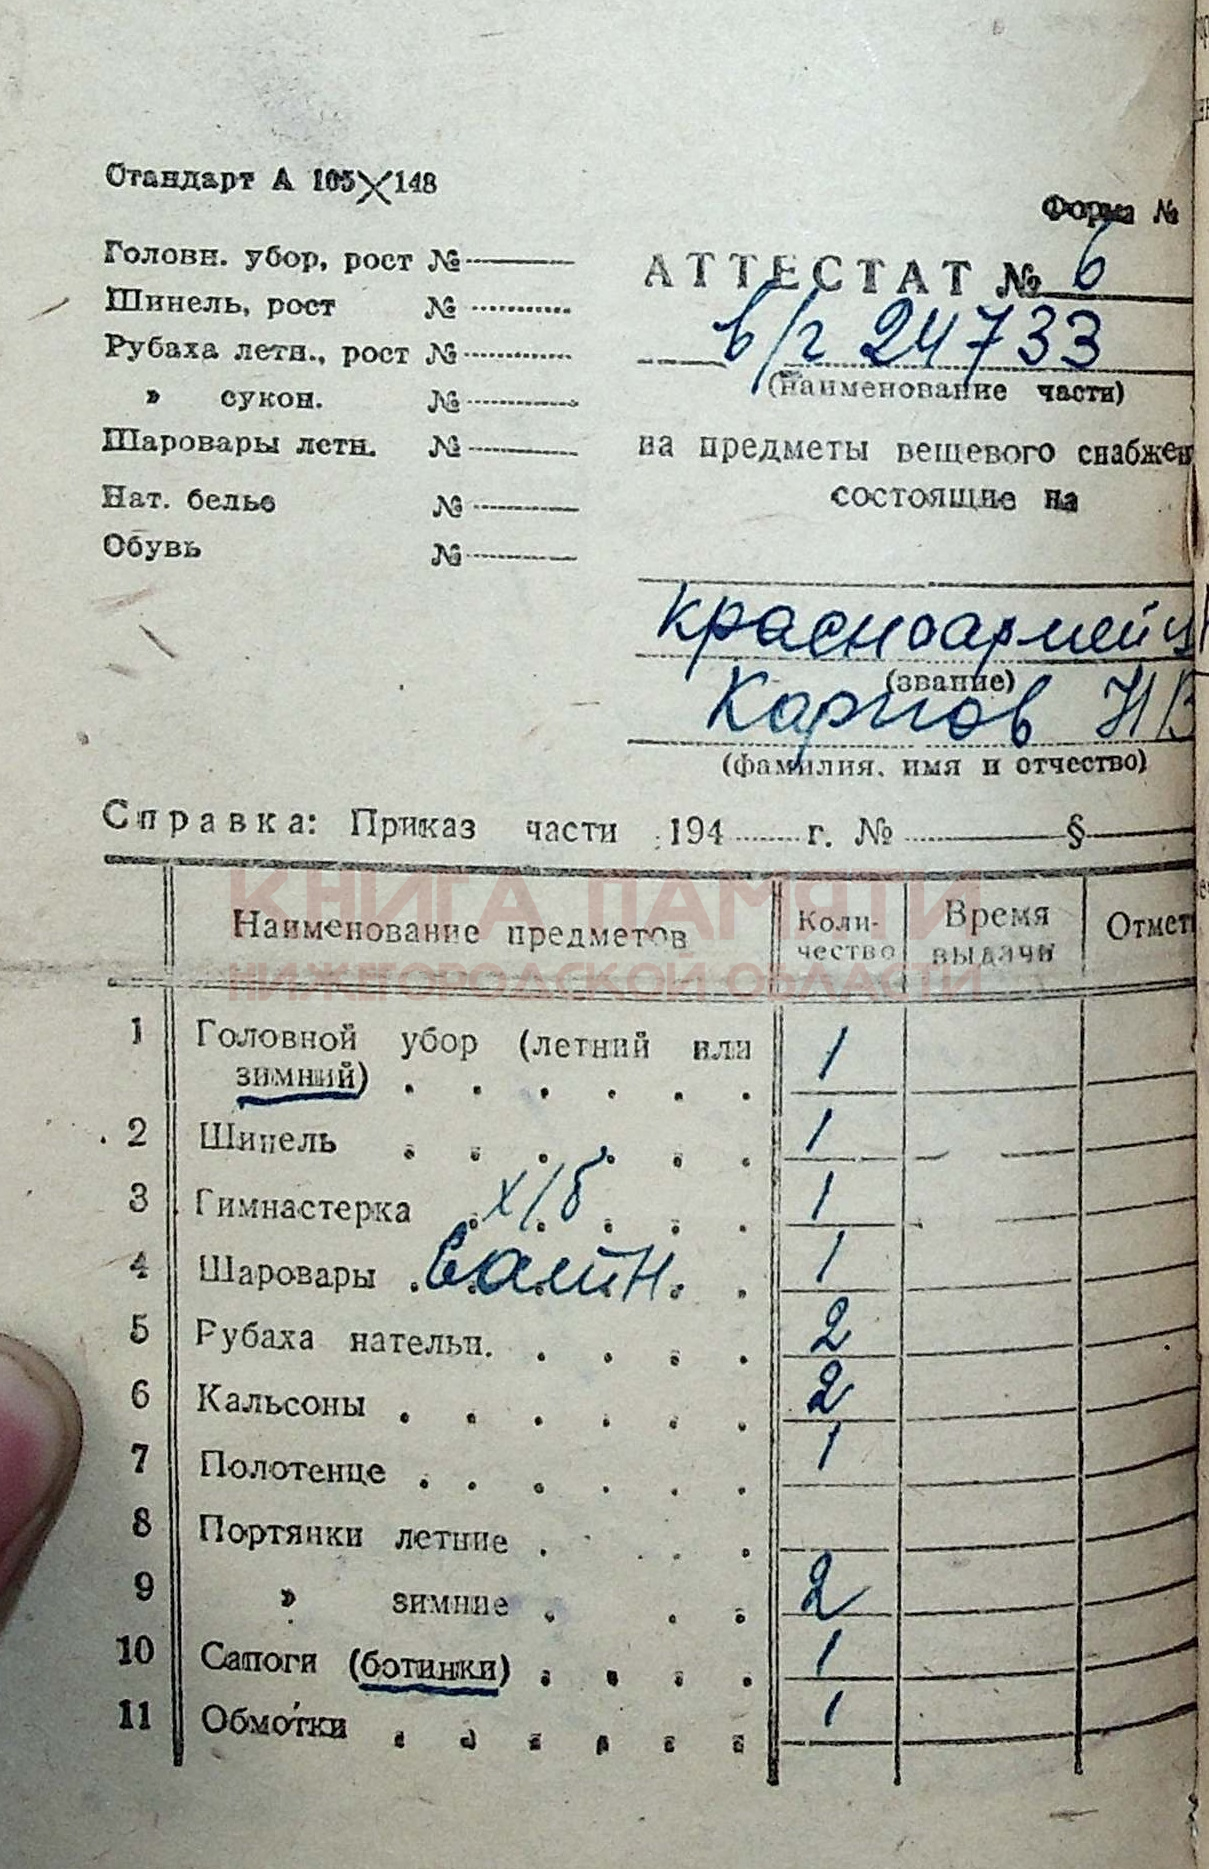 Стандарт А 105×148
Форма №
Головн. убор, рост №
Шинель, рост №
Рубаха летн., рост №
» сукон. №
Шаровары летн. №
Нат. белье №
Обувь №
АТТЕСТАТ № 6
в/г 24733
(наименование части)
на предметы вещевого снабжен
состоящие на
красноармейц
(звание)
Карпов Н В
(фамилия, имя и отчество)
Справка: Приказ части 194 г. № §
КНИГА ПАМЯТИ
НИЖЕГОРОДСКОЙ ОБЛАСТИ
Наименование предметов Коли- чество Время выдачи Отмет
1 Головной убор (летний или зимний) 1
2 Шинель 1
3 Гимнастерка х/б 1
4 Шаровары 1
5 Рубаха нательн. 2
6 Кальсоны 2
7 Полотенце 1
8 Портянки летние
9 » зимние 2
10 Сапоги (ботинки) 1
11 Обмотки 1